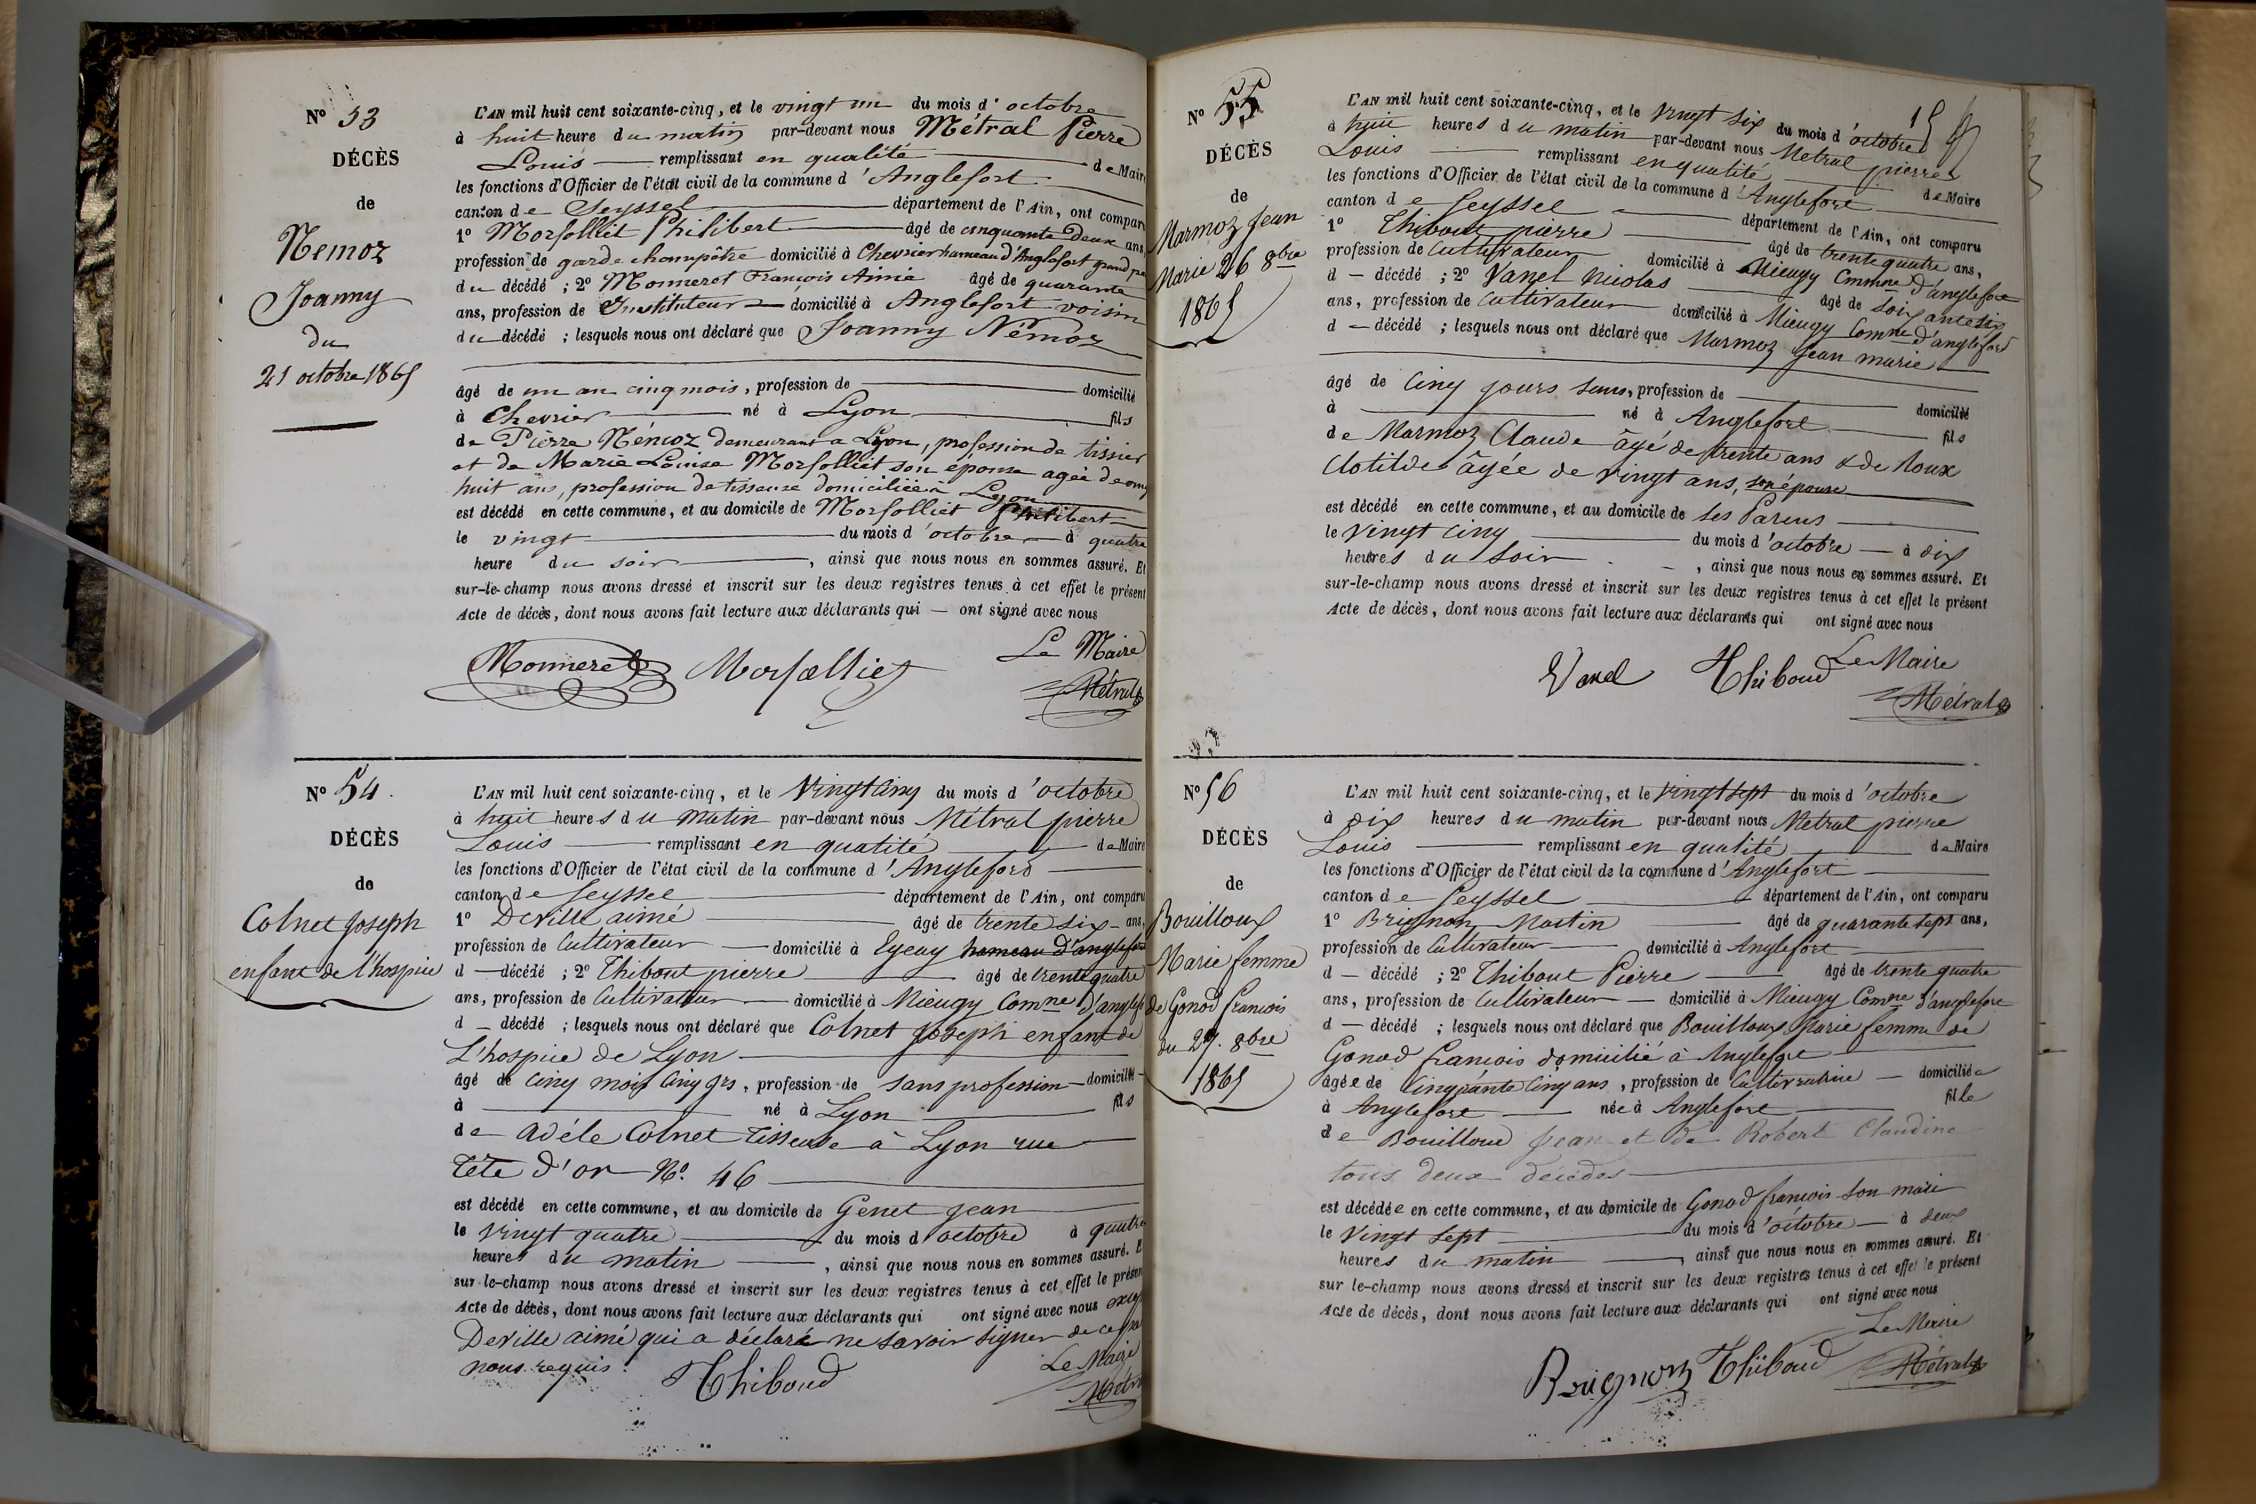 N° 53
DÉCÈS
de
Nemoz
Joanny
du
21 octobre 1865
L'AN mil huit cent soixante-cinq, et le vingt un du mois d'octobre
à huit heure du matin par-devant nous Métral Pierre
Louis remplissant en qualité de Maire
les fonctions d'Officier de l'état civil de la commune d'Anglefort
canton de Seyssel département de l'Ain, ont comparu
1° Morfolliet Philibert âgé de cinquante Deux ans
profession de garde champêtre domicilié à Chevrier hameau d'Anglefort grand
du décédé ; 2° Monneret François Aimé âgé de quarante
ans, profession de Instituteur domicilié à Anglefort voisin
du décédé ; lesquels nous ont déclaré que Joanny Némoz
âgé de un an cinq mois, profession de domicilié
à Chevrier né à Lyon fils
de Pierre Némoz demeurant a Lyon, profession de tissier
et de Marie Louise Morfolliet son épouse agée de
huit ans, profession de tisseuse domiciliée à Lyon
est décédé en cette commune, et au domicile de Morfolliet Philibert
le vingt du mois d'octobre à quatre
heure du soir, ainsi que nous nous en sommes assuré. Et
sur-le-champ nous avons dressé et inscrit sur les deux registres tenus à cet effet le présent
Acte de décès, dont nous avons fait lecture aux déclarants qui — ont signé avec nous
Le Maire
Monneret Morfolliet
Métral
N° 54.
DÉCÈS
de
Colnet Joseph
enfant de l'hospice
L'AN mil huit cent soixante-cinq, et le Vingt Cinq du mois d'octobre
à huit heures du matin par-devant nous Métral pierre
Louis remplissant en qualité de Maire
les fonctions d'Officier de l'état civil de la commune d'Angleford
canton de Seyssel département de l'Ain, ont comparu
1° Deville aimé âgé de trente six ans,
profession de Cultivateur domicilié à Eycuy hameau d'anglefort
d — décédé ; 2° Thibout pierre âgé de trente quatre
ans, profession de Cultivateur domicilié à Mieugy Comne d'anglefo
d — décédé ; lesquels nous ont déclaré que Colnet Joseph enfant de
L'hospice de Lyon
âgé de Cinq mois Cinq jrs, profession de sans profession domicilié
à né à Lyon fils
de Adéle Colnet tisseuse à Lyon rue
Tête d'or N° 46
est décédé en cette commune, et au domicile de Genet Jean
le Vingt quatre du mois d'octobre à quatre
heures du matin, ainsi que nous nous en sommes assuré. E
sur-le-champ nous avons dressé et inscrit sur les deux registres tenus à cet effet le présent
Acte de décès, dont nous avons fait lecture aux déclarants qui ont signé avec nous
Deville aimé qui a déclaré ne savoir signer de ce
nous requis.
Le Maire
Thiboud
Métral
15
N° 55
DÉCÈS
de
Marmoz Jean
Marie 26 8bre
1865
L'AN mil huit cent soixante-cinq, et le Vingt six du mois d'octobre
à huit heures du matin par-devant nous Métral pierre
Louis remplissant en qualité de Maire
les fonctions d'Officier de l'état civil de la commune d'Anglefort
canton de Seyssel département de l'Ain, ont comparu
1° Thibout pierre âgé de trente quatre ans,
profession de Cultivateur domicilié à Mieugy Cmmne d'anglefort
d — décédé ; 2° Vanel Nicolas âgé de soixante six
ans, profession de Cultivateur domicilié à Mieugy Comne d'angleford
d — décédé ; lesquels nous ont déclaré que Marmoz Jean marie
âgé de Cinq jours sans, profession de domicilié
à né à Anglefort fils
de Marmoz Claude âgé de trente ans & de Roux
Clotilde âgée de Vingt ans, son épouse
est décédé en cette commune, et au domicile de ses Parens
le Vingt Cinq du mois d'octobre — à dix
heures du soir, ainsi que nous nous en sommes assuré. Et
sur-le-champ nous avons dressé et inscrit sur les deux registres tenus à cet effet le présent
Acte de décès, dont nous avons fait lecture aux déclarants qui ont signé avec nous
Le Maire
Vanel Thiboud
Métral
N° 56
DÉCÈS
de
Bouilloux
Marie femme
de Gonod françois
du 27. 8bre
1865
L'AN mil huit cent soixante-cinq, et le Vingt sept du mois d'octobre
à dix heures du matin par-devant nous Métral pierre
Louis remplissant en qualité de Maire
les fonctions d'Officier de l'état civil de la commune d'Anglefort
canton de Seyssel département de l'Ain, ont comparu
1° Brignon Martin âgé de quarante sept ans,
profession de Cultivateur domicilié à Anglefort
d — décédé ; 2° Thibout Pierre âgé de trente quatre
ans, profession de Cultivateur — domicilié à Mieugy Comne d'anglefort
d — décédé ; lesquels nous ont déclaré que Bouilloux Marie femme de
Gonod françois domicilié à Anglefort
âgée de Cinquante Cinq ans, profession de Cultivatrice — domiciliée
à Anglefort née à Anglefort fille
de Bouilloud Jean et de Robert Claudine
tous deux décédés
est décédée en cette commune, et au domicile de Gonod françois son mari
le Vingt sept du mois d'octobre — à deux
heures du matin, ainsi que nous nous en sommes assuré. Et
sur le-champ nous avons dressé et inscrit sur les deux registres tenus à cet effet le présent
Acte de décès, dont nous avons fait lecture aux déclarants qui ont signé avec nous
Le Maire
Brignon Thiboud Métral